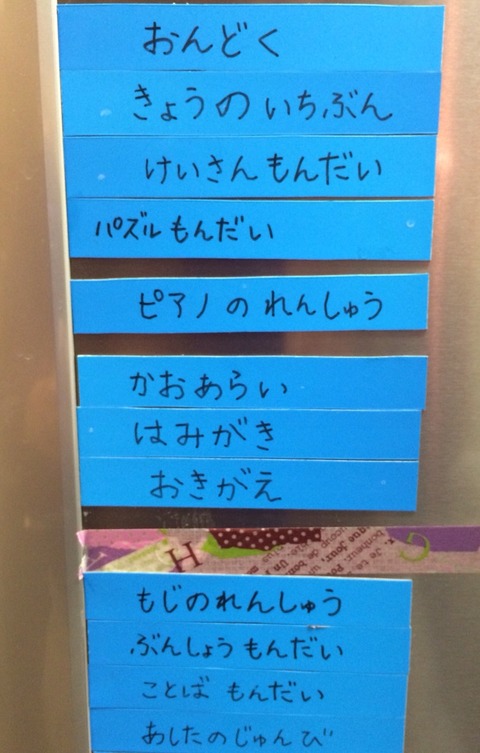 おんどく
きょうのいちぶん
けいさんもんだい
パズルもんだい
ピアノのれんしゅう
かおあらい
はみがき
おきがえ
H
もじのれんしゅう
ぶんしょうもんだい
ことばもんだい
あしたのじゅんび